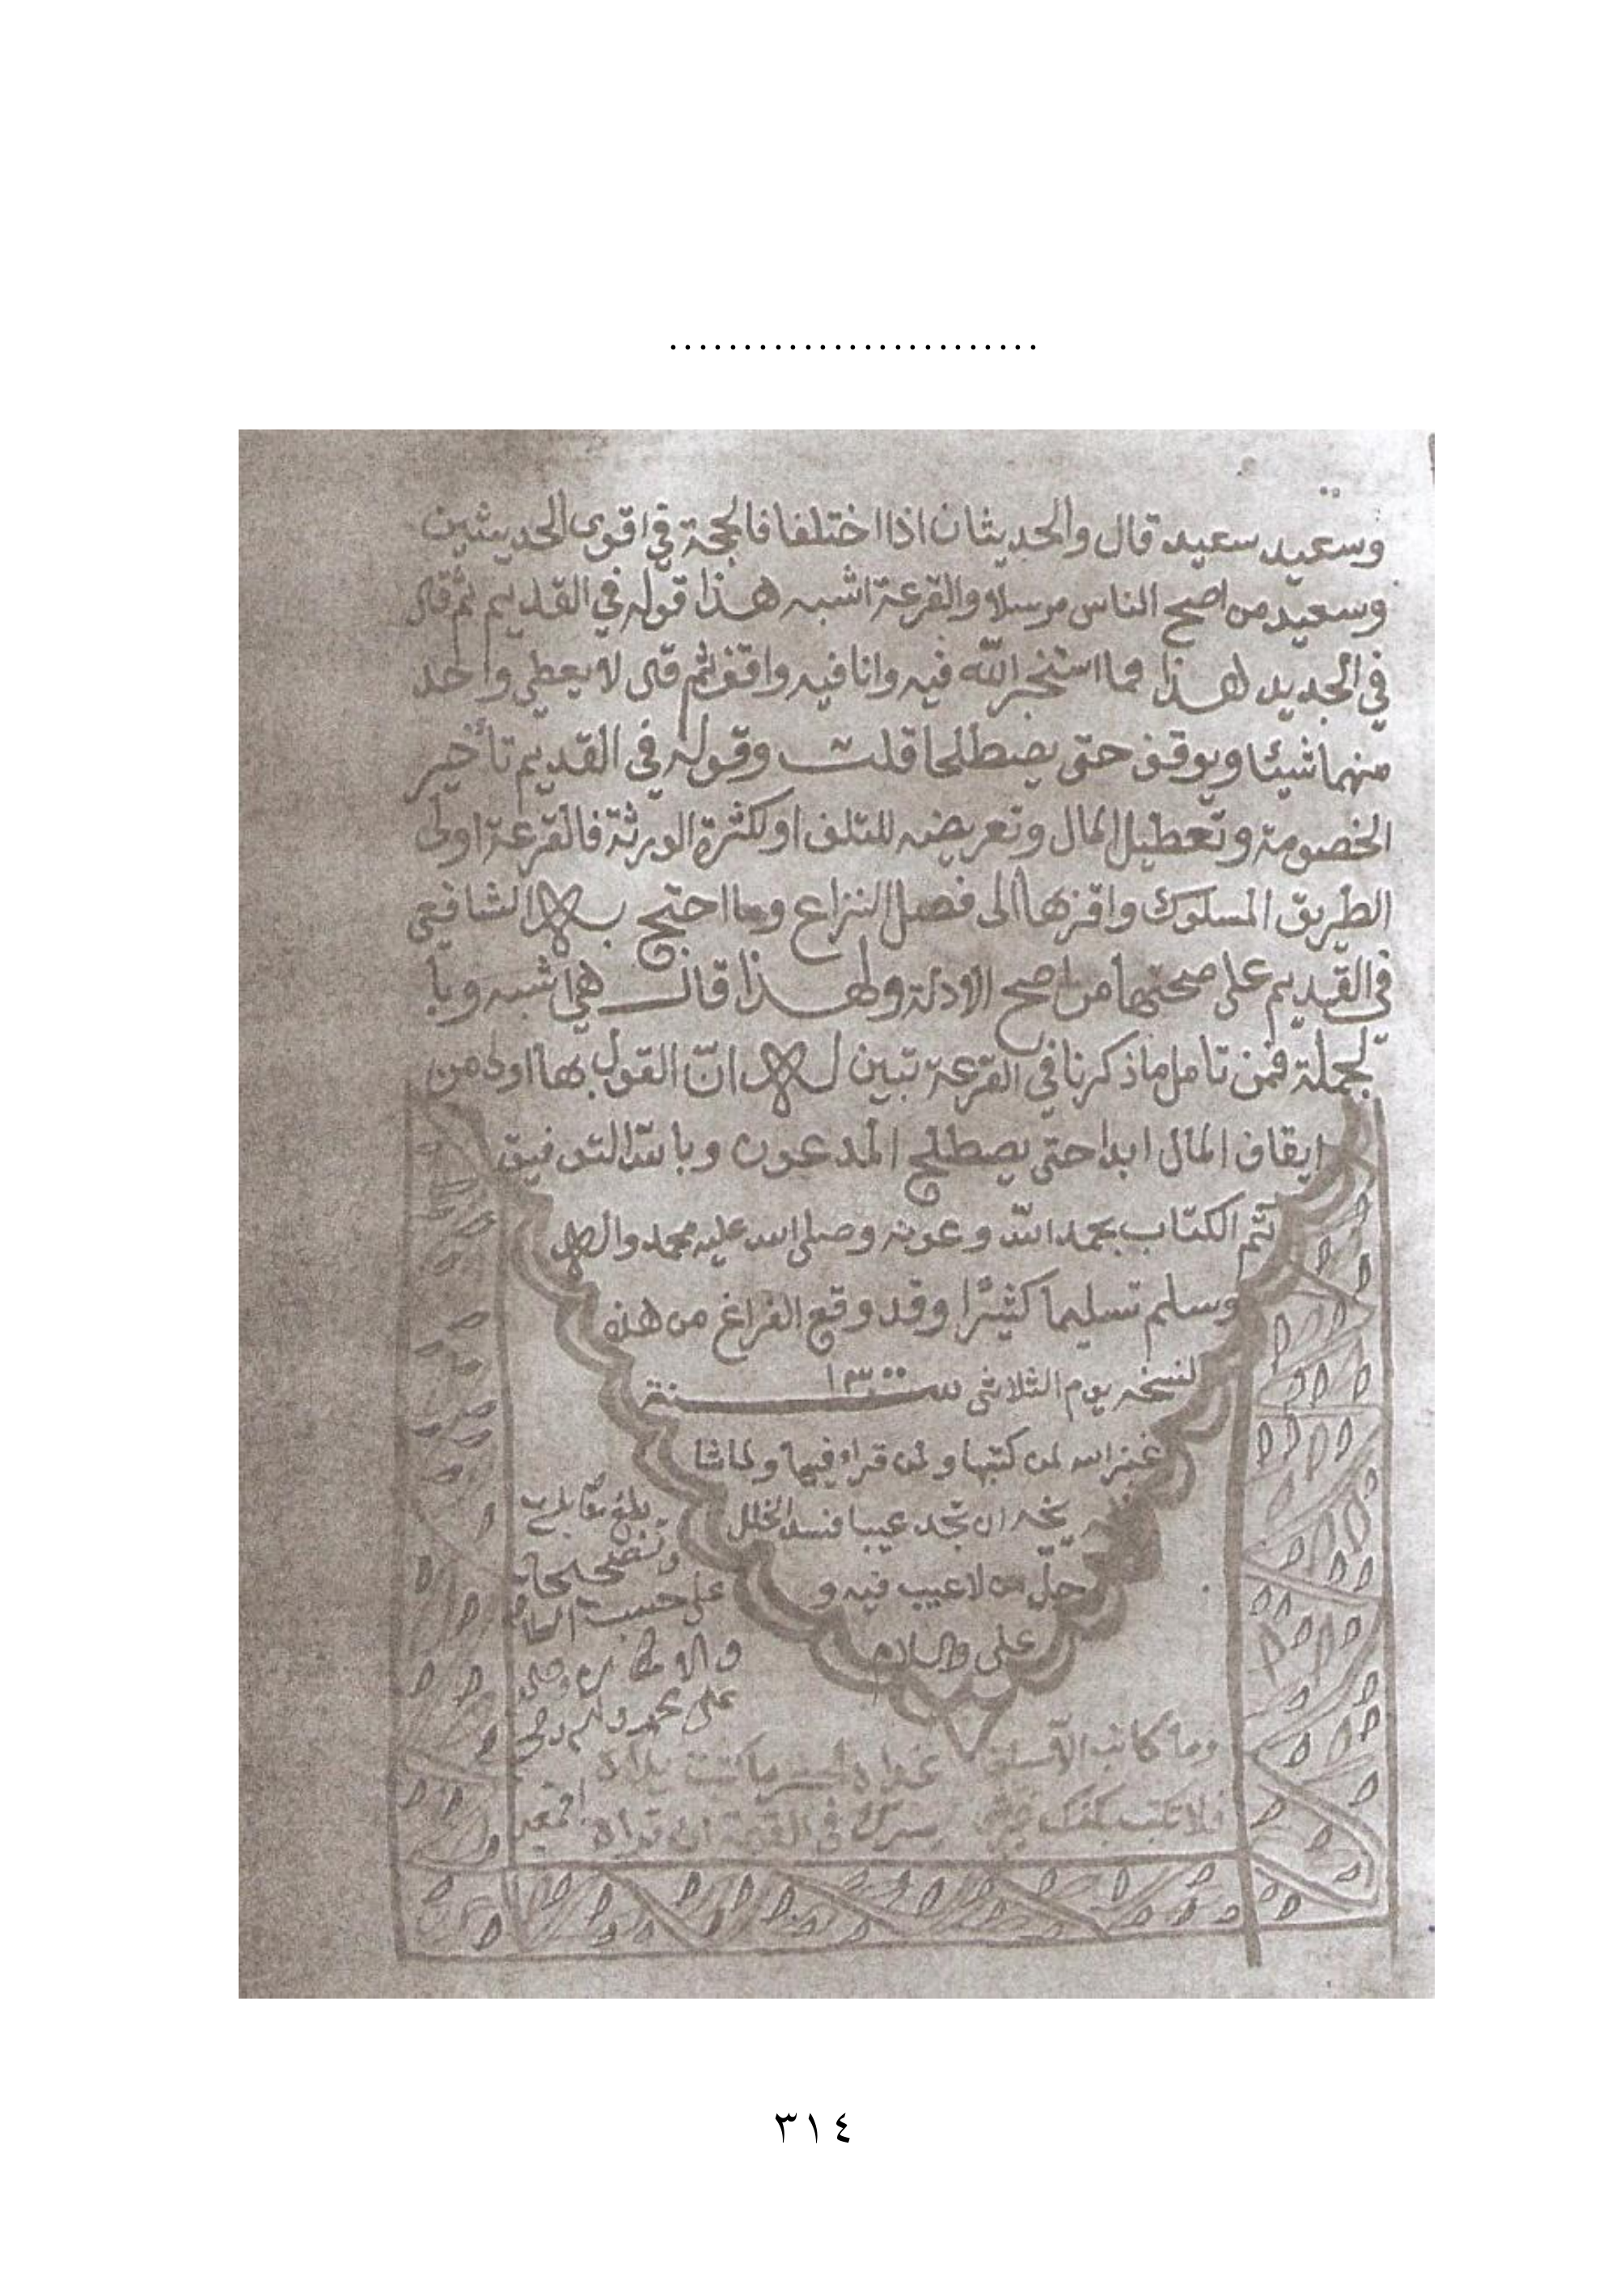 .........................
وسعيد سعيد قال والحديثان اذا اختلفا فالحجة في اقوى الحديثين
وسعيد من اصح الناس مرسلا والقرعة اشبه هذا قوله في القديم ثم قال
في الجديد هذا مما استخير الله فيه وانا فيه واقف ثم قال لا يعطي واحد
منهما شيئا ويوقف حتى يصطلحا قلت وقوله في القديم تأخير
الخصومة وتعطيل المال وتعريضه للتلف او لكثرة الورثة فالقرعة اولى
الطريق المسلوك واقربها الى فصل النزاع وما احتج به الشافعي
في القديم على صحتها من اصح الادلة ولهذا قال هي اشبه وبا
لجملة فمن تامل ما ذكرنا في القرعة تبين له ان القول بها اولى من
ايقاف المال ابدا حتى يصطلح المدعون وبالله التوفيق
تم الكتاب بحمد الله وعونه وصلى الله عليه محمد واله
وسلم تسليما كثيرا وقد وقع الفراغ من هذه
لنسخه يوم الثلاثى سنة ١٣٠٠
غفر الله لمن كتبها ولمن قراء فيها
ان تجد عيبا فسد الخلل
جل من لا عيب فيه و
على
بلغ مقابلة
وتصحيحا
على حسب
على محمد
وما كاتب الا
فلا تكتب بكفك غير
في القيمة ان تراه
٣١٤